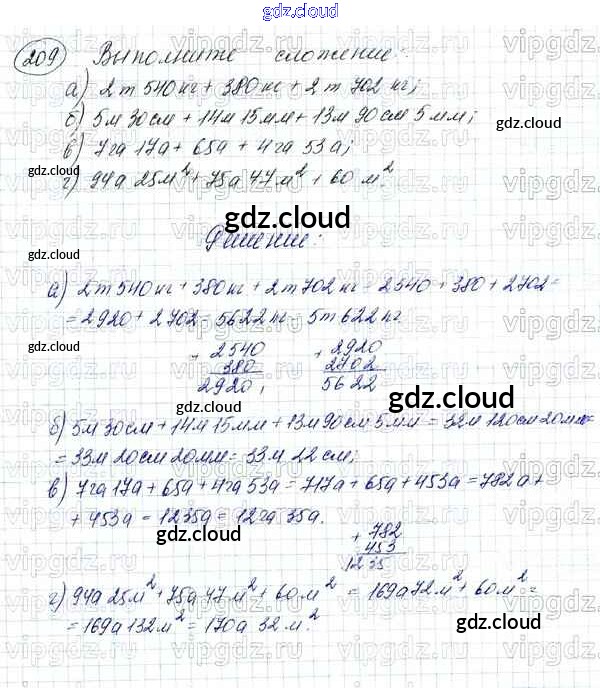 gdz.cloud
209 Выполните сложение:
а) 2т 540кг + 380кг + 2т 702 кг;
б) 5м 30см + 14м 15мм + 13м 90см 5мм;
gdz.cloud
в) 7га 17а + 65а + 4га 53а;
г) 94а 25м² + 75а 47м² + 60 м².
gdz.cloud
gdz.cloud
Решение:
gdz.cloud
а) 2т540кг + 380кг + 2т702кг = 2540 + 380 + 2702 =
= 2920 + 2702 = 5622кг = 5т622кг.
gdz.cloud
+ 2540 + 2920
380 2702
2920, 5622
gdz.cloud
б) 5м30см + 14м15мм + 13м90см5мм = 32м120см20мм =
= 33м20см20мм = 33м22см;
gdz.cloud
в) 7га17а + 65а + 4га53а = 717а + 65а + 453а = 782а +
+ 453а = 1235а = 12га35а.
gdz.cloud
+ 782
453
1235
г) 94а25м² + 75а47м² + 60м² = 169а72м² + 60м² =
gdz.cloud
= 169а132м² = 170а 32м².
gdz.cloud